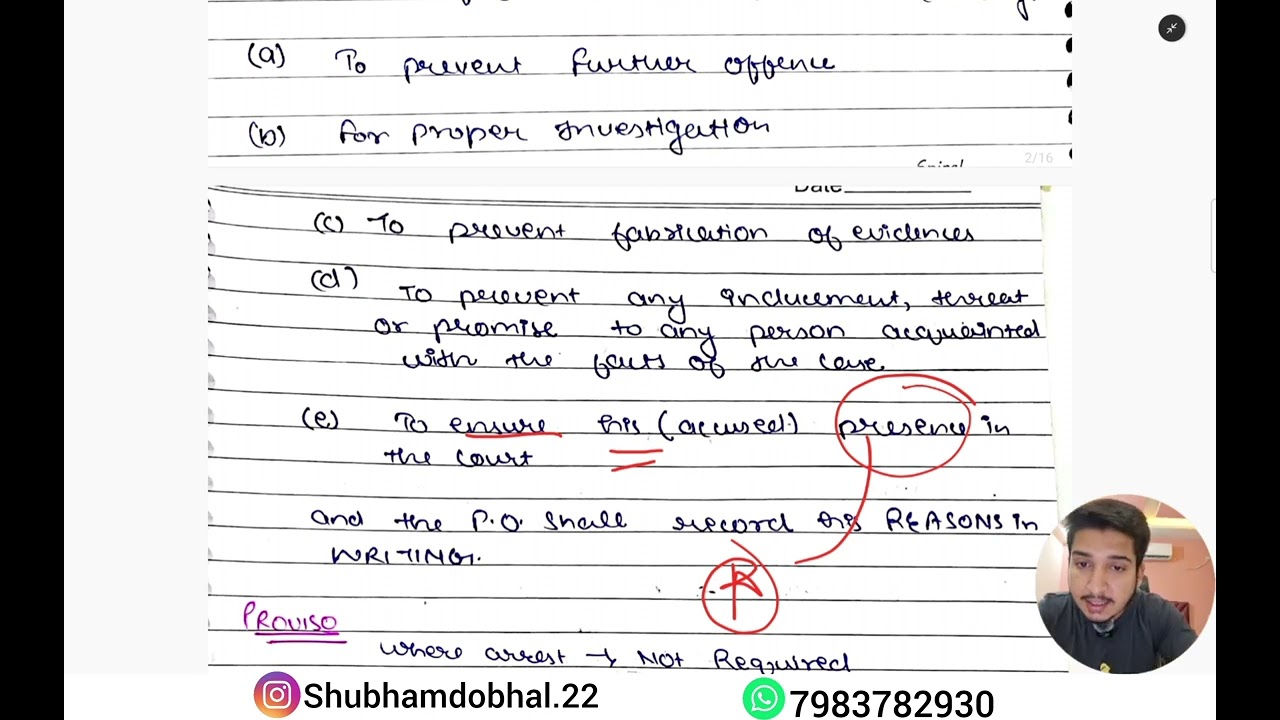 (a) To prevent further offence
(b) for proper investigation
2/16
Date
(c) To prevent fabrication of evidences
(d) To prevent any inducement, threat
or promise to any person acquainted
with the facts of the case.
(e) To ensure his (accused) presence in
the court
and the P.O. shall record his REASONS in
WRITING.
PROVISO
where arrest → NOT Required
Shubhamdobhal.22
7983782930